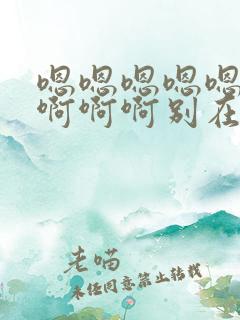 嗯嗯嗯嗯嗯
啊啊啊别在
老喵
未经同意禁止转载